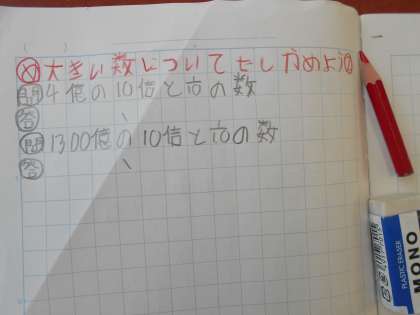 ( )
め 大きい数についてたしかめよう。
問 4億の10倍と1/10の数
答 、
問 1300億の10倍と1/10の数
答 、
PLASTIC ERASER
MONO